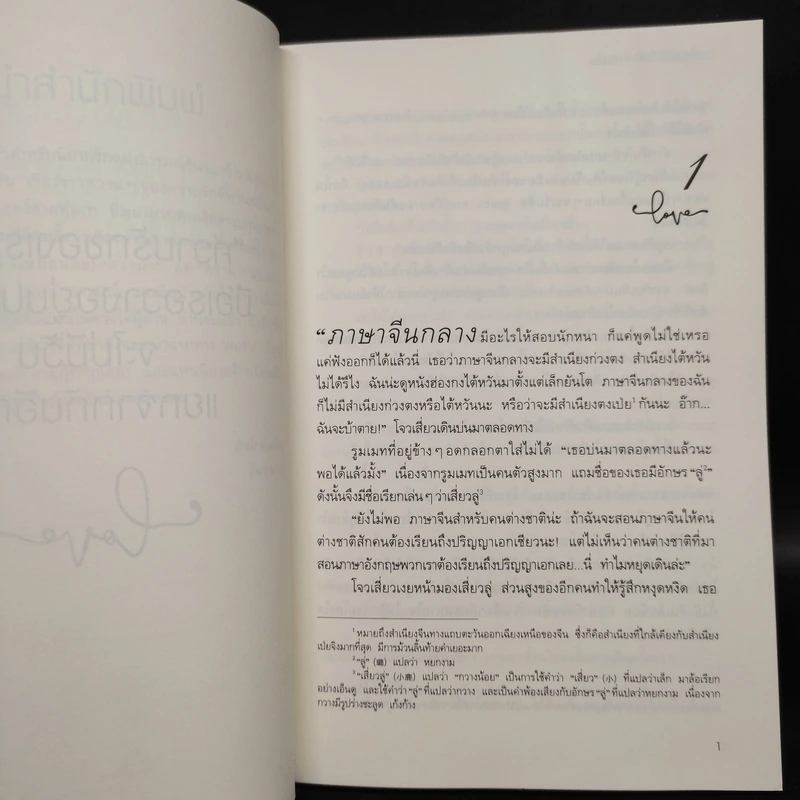 1
love
“ภาษาจีนกลาง มีอะไรให้สอบนักหนา ก็แค่พูดไม่ใช่เหรอ
แค่ฟังออกก็ได้แล้วนี่ เธอว่าภาษาจีนกลางจะมีสำเนียงก่วงตง สำเนียงไต้หวัน
ไม่ได้รึไง ฉันน่ะดูหนังฮ่องกงไต้หวันมาตั้งแต่เล็กยันโต ภาษาจีนกลางของฉัน
ก็ไม่มีสำเนียงก่วงตงหรือไต้หวันนะ หรือว่าจะมีสำเนียงตงเป่ย¹ กันนะ อ๊าก...
ฉันจะบ้าตาย!” โจวเสี่ยวเดินบ่นมาตลอดทาง
รูมเมทที่อยู่ข้างๆ อดกลอกตาใส่ไม่ได้ “เธอบ่นมาตลอดทางแล้วนะ
พอได้แล้วมั้ง” เนื่องจากรูมเมทเป็นคนตัวสูงมาก แถมชื่อของเธอมีอักษร “ลู่²”
ดังนั้นจึงมีชื่อเรียกเล่นๆ ว่าเสี่ยวลู่³
“ยังไม่พอ ภาษาจีนสำหรับคนต่างชาติน่ะ ถ้าฉันจะสอนภาษาจีนให้คน
ต่างชาติสักคนต้องเรียนถึงปริญญาเอกเชียวนะ! แต่ไม่เห็นว่าคนต่างชาติที่มา
สอนภาษาอังกฤษพวกเราต้องเรียนถึงปริญญาเอกเลย...นี่ ทำไมหยุดเดินล่ะ”
โจวเสี่ยวเงยหน้ามองเสี่ยวลู่ ส่วนสูงของอีกคนทำให้รู้สึกหงุดหงิด เธอ
¹ หมายถึงสำเนียงจีนทางแถบตะวันออกเฉียงเหนือของจีน ซึ่งก็คือสำเนียงที่ใกล้เคียงกับสำเนียง
เป่ยจิงมากที่สุด มีการม้วนลิ้นท้ายคำเยอะมาก
² “ลู่” แปลว่า หยกงาม
³ “เสี่ยวลู่” (小鹿) แปลว่า “กวางน้อย” เป็นการใช้คำว่า “เสี่ยว” (小) ที่แปลว่าเล็ก มาล้อเรียก
อย่างเอ็นดู และใช้คำว่า “ลู่” ที่แปลว่ากวาง และเป็นคำพ้องเสียงกับอักษร “ลู่” ที่แปลว่าหยกงาม เนื่องจาก
กวางมีรูปร่างชะลูด เก้งก้าง
1